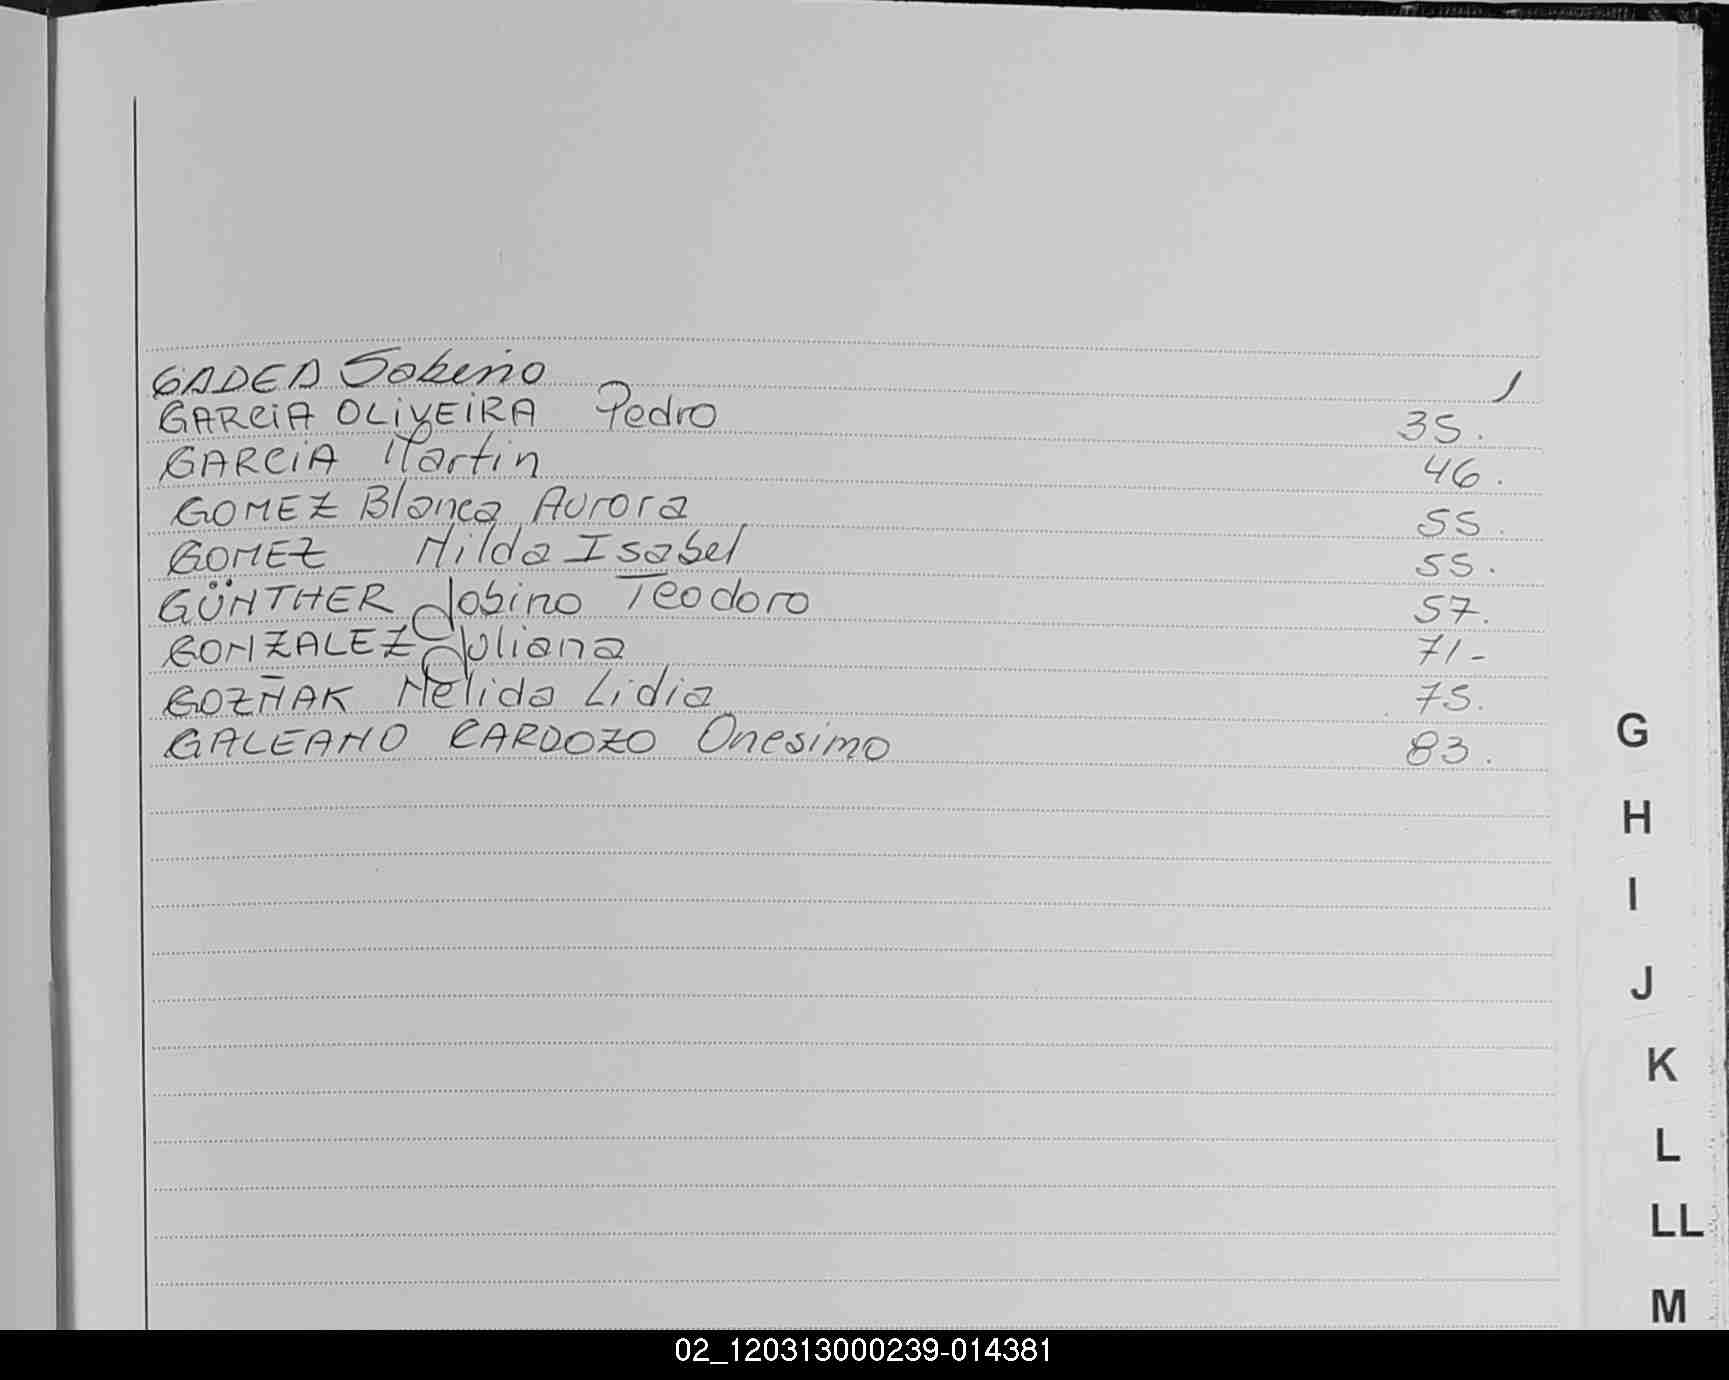 GADEA Sabino 1
GARCIA OLIVEIRA Pedro 35.
GARCIA Martin 46.
GOMEZ Blanca Aurora 55.
GOMEZ Nilda Isabel 55.
GÜNTHER Jobino Teodoro 57.
GONZALEZ Juliana 71-
GOZÑAK Nelida Lidia 75.
GALEANO CARDOZO Onesimo 83.
G
H
I
J
K
L
LL
M
02_120313000239-014381